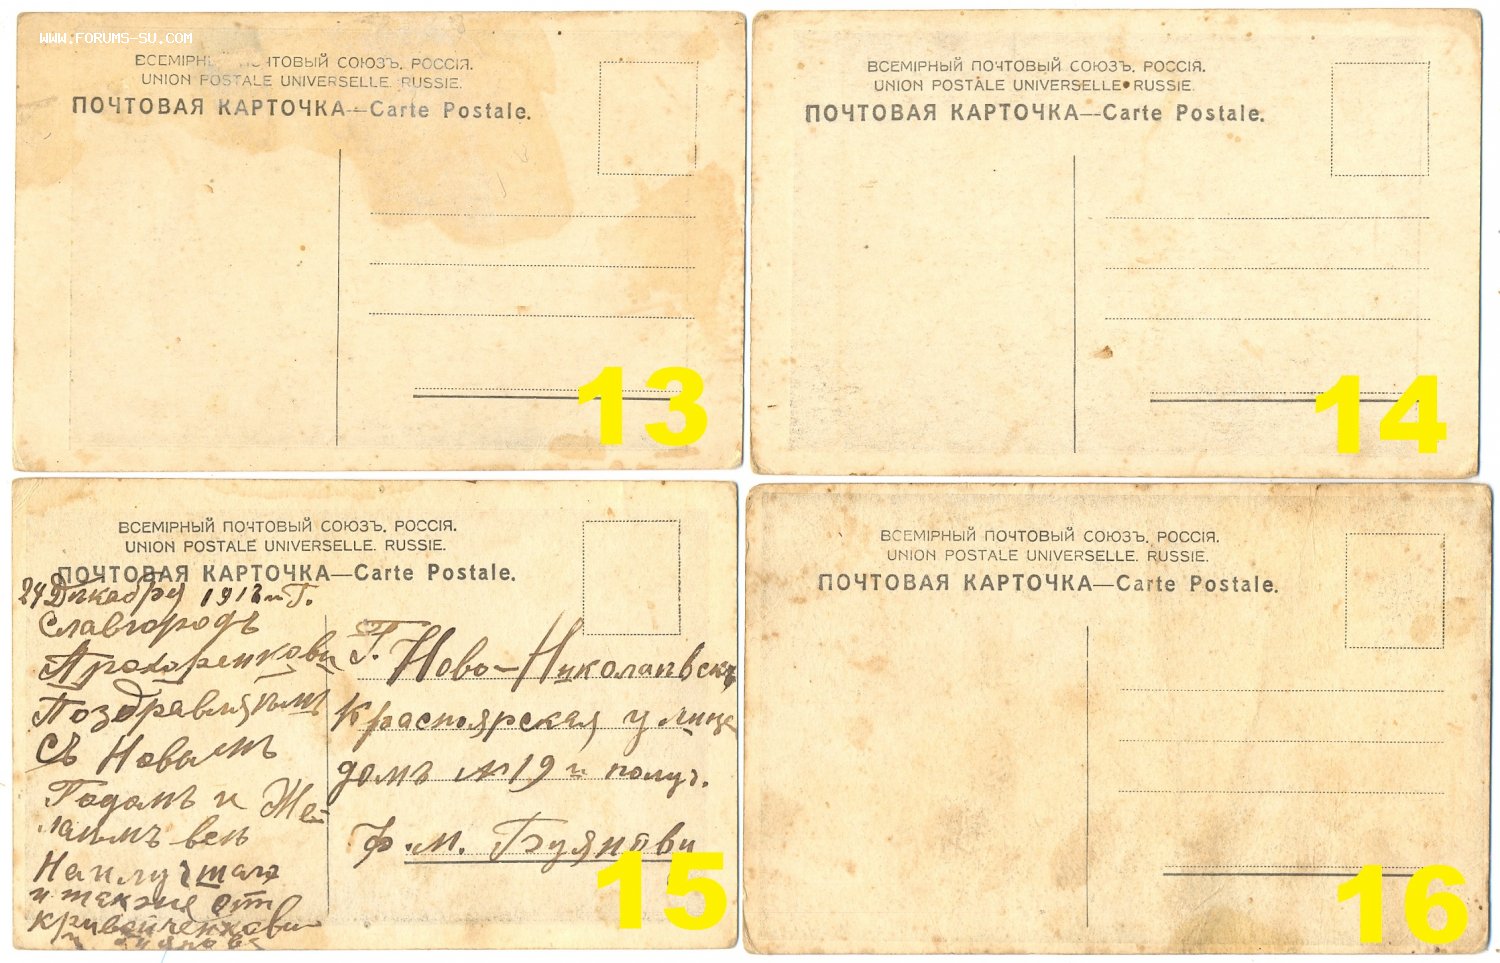 WWW.FORUMS-SU.COM
ВСЕМІРН ЧТОВЫЙ СОЮЗЪ. РОССІЯ.
UNION POSTALE UNIVERSELLE. RUSSIE.
ПОЧТОВАЯ КАРТОЧКА—Carte Postale.
13
ВСЕМІРНЫЙ ПОЧТОВЫЙ СОЮЗЪ. РОССІЯ.
UNION POSTALE UNIVERSELLE. RUSSIE.
ПОЧТОВАЯ КАРТОЧКА—Carte Postale.
14
ВСЕМІРНЫЙ ПОЧТОВЫЙ СОЮЗЪ. РОССІЯ.
UNION POSTALE UNIVERSELLE. RUSSIE.
ПОЧТОВАЯ КАРТОЧКА—Carte Postale.
24 Декабря Г.
Славгородъ
Поздравляемъ
Съ Новымъ
Годамъ и Же
лаимъ
Наилучшаго
Г. Ново-Николаивскъ
Красноярская улица
домъ №19 и получ.
Ф. м.
15
ВСЕМІРНЫЙ ПОЧТОВЫЙ СОЮЗЪ. РОССІЯ.
UNION POSTALE UNIVERSELLE. RUSSIE.
ПОЧТОВАЯ КАРТОЧКА—Carte Postale.
16